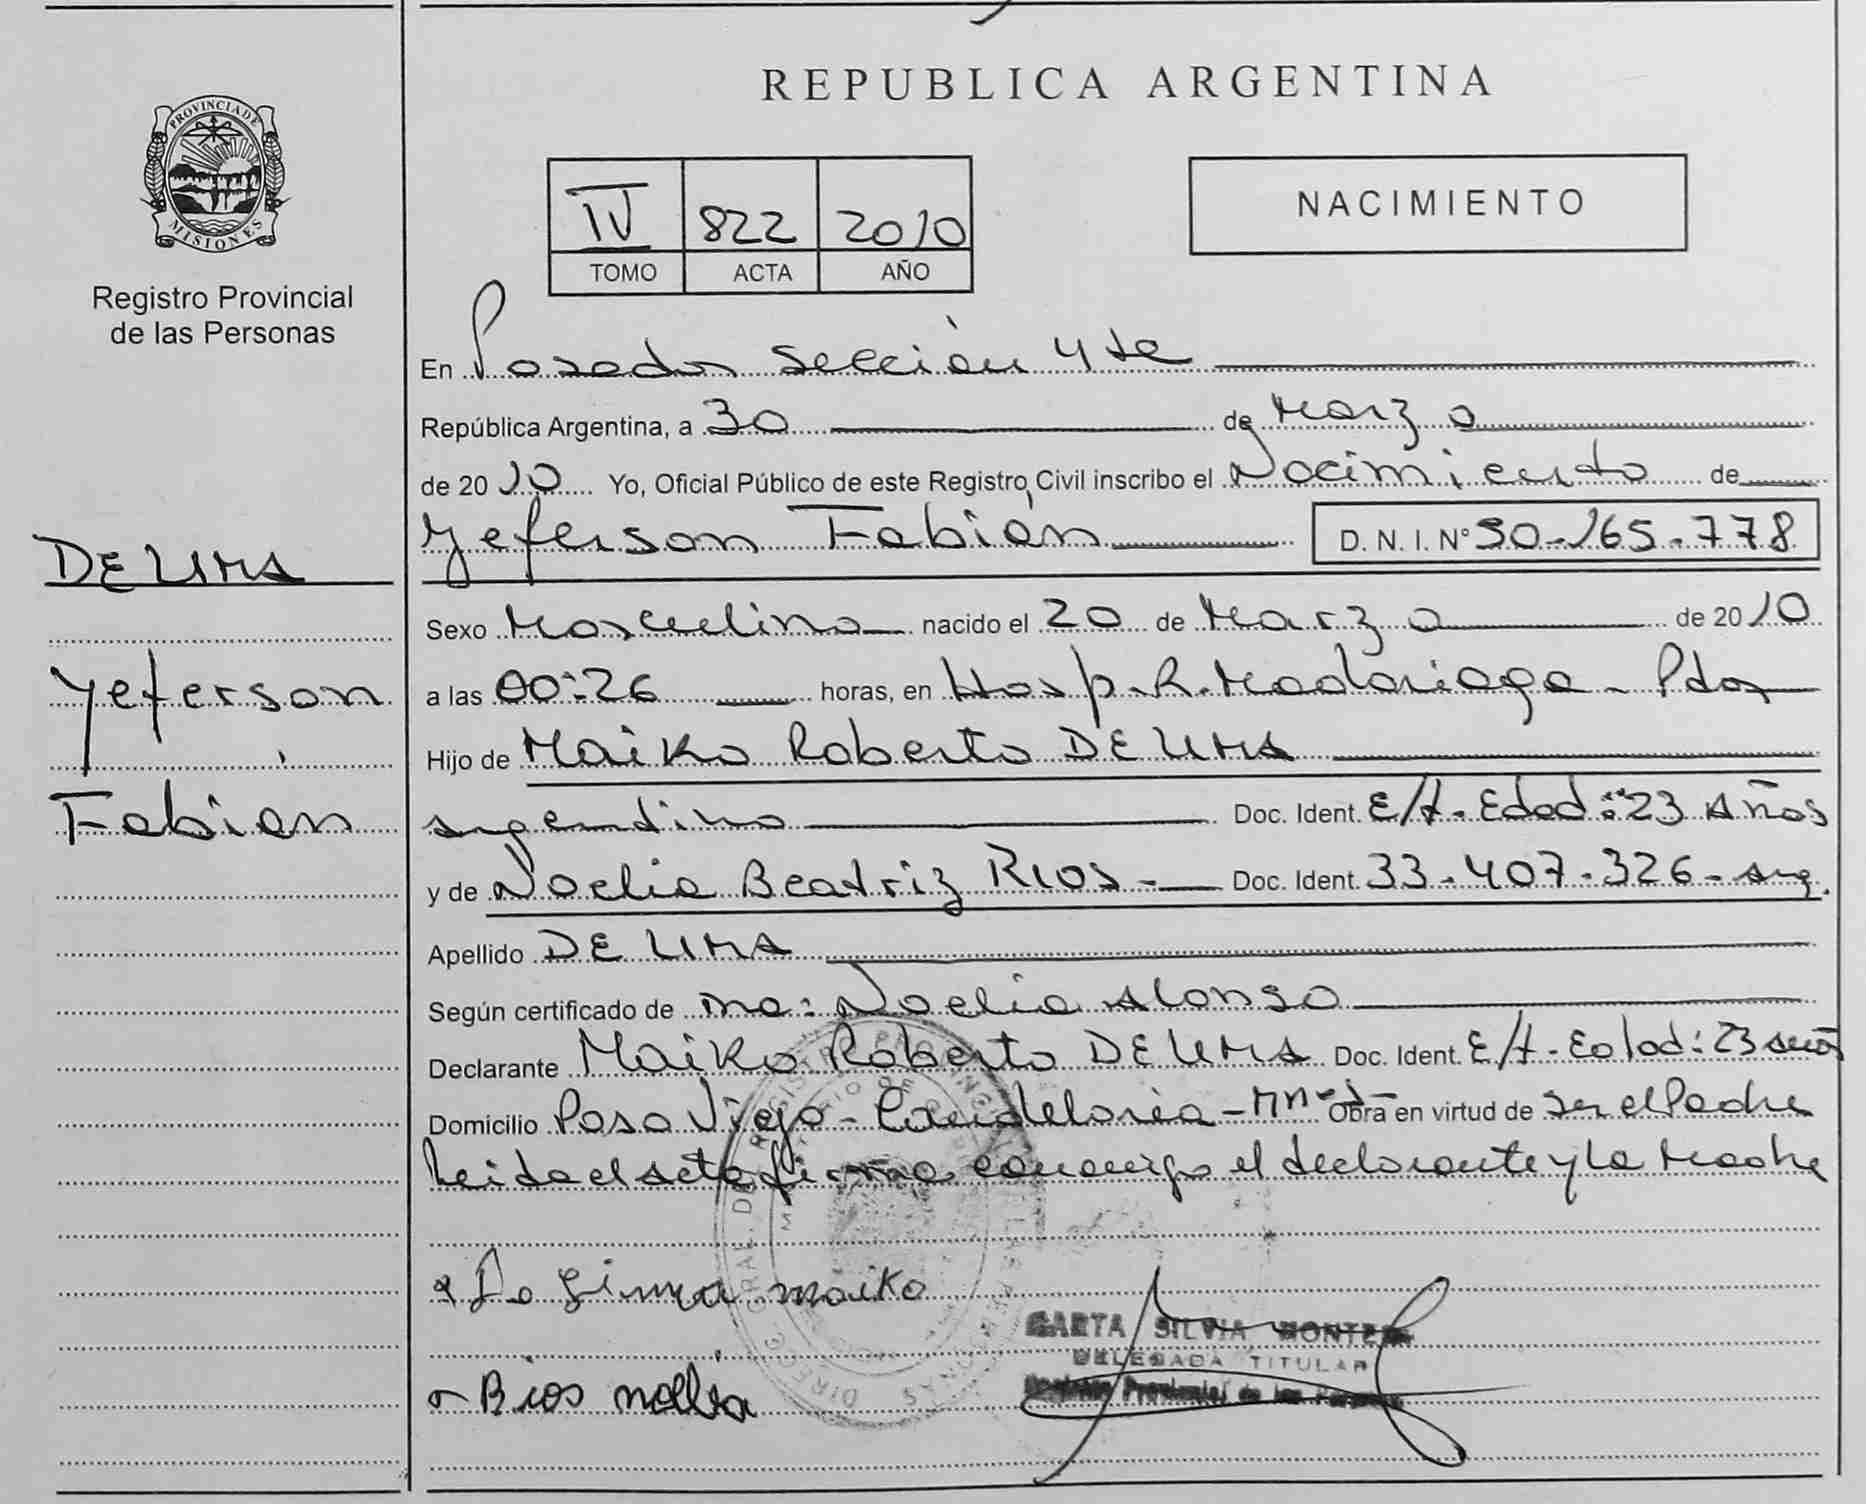 PROVINCIA DE
MISIONES
Registro Provincial
de las Personas
DE LIMA
Yeferson
Fabián
REPUBLICA ARGENTINA
IV 822 2010
TOMO ACTA AÑO
NACIMIENTO
En Posadas Sección 4 ta
República Argentina, a 30 de Marzo
de 2010 Yo, Oficial Público de este Registro Civil inscribo el Nacimiento de
Yeferson Fabián D. N. I. N° 50-165-778
Sexo Masculino nacido el 20 de Marzo de 2010
a las 00:26 horas, en Hosp. R. Madariaga - Pdas
Hijo de Maiko Roberto DE LIMA
argentino Doc. Ident. E/t. Edad: 23 Años
y de Noelia Beatriz RIOS - Doc. Ident. 33-407-326- arg.
Apellido DE LIMA
Según certificado de Noelia Alonso
Declarante Maiko Roberto DE LIMA Doc. Ident. E/t. Edad: 23 años
Domicilio Posa Viejo - Candelaria - Mnes Obra en virtud de Ser el Padre
Leida el acta firma conmigo el declarante y la Madre
De Lima maiko
Rios noelia
SILVIA
DELEGADA TITULAR
Registro Provincial de las Personas